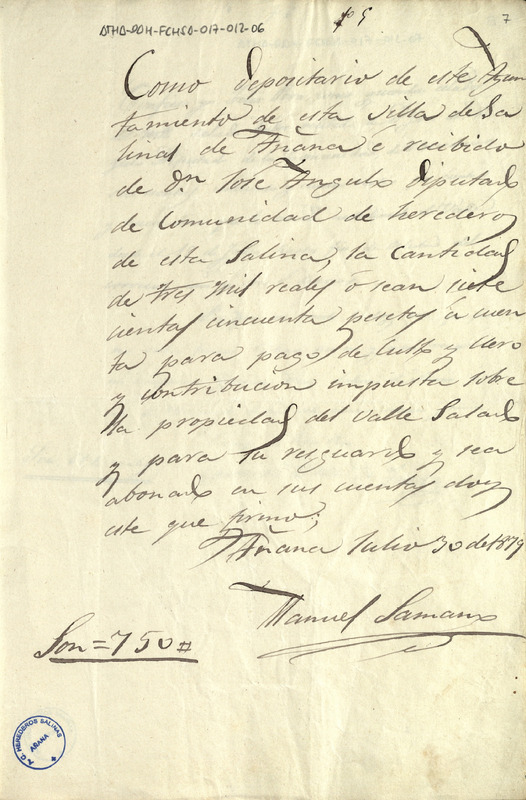 ATHA-DAH-FCHSA-017-012-06
Nº 5
7
Como depositario de este Ayun
tamiento de esta villa de Sa
linas de Añana é recibido
de Dn José Angulo diputado
de Comunidad de herederos
de esta Salina, la cantidad
de tres mil reales ó sean siete
cientas cincuenta pesetas á cuen
ta para pago de Culto y Clero
y contribucion impuesta sobre
la propiedad del valle Salado
y para su resguardo y sea
abonado en sus cuentas doy
este que firmo;
Añana Julio 30 de 1879
Manuel Samano
Son = 750 #
A. G. HEREDEROS SALINAS
AÑANA